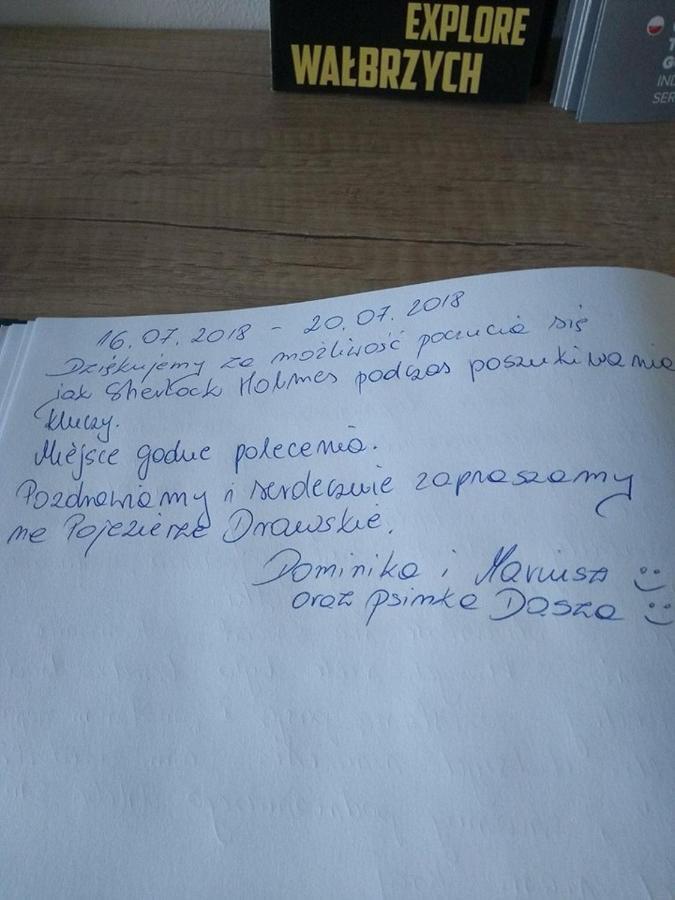 EXPLORE
WAŁBRZYCH
16.07.2018 - 20.07.2018
Dziękujemy za możliwość poczucia się
jak Sherlock Holmes podczas poszukiwania
kluczy.
Miejsce godne polecenia.
Pozdrawiamy i serdecznie zapraszamy
na Pojezierze Drawskie.
Dominika i Mariusz :)
oraz psinka Dasza :)